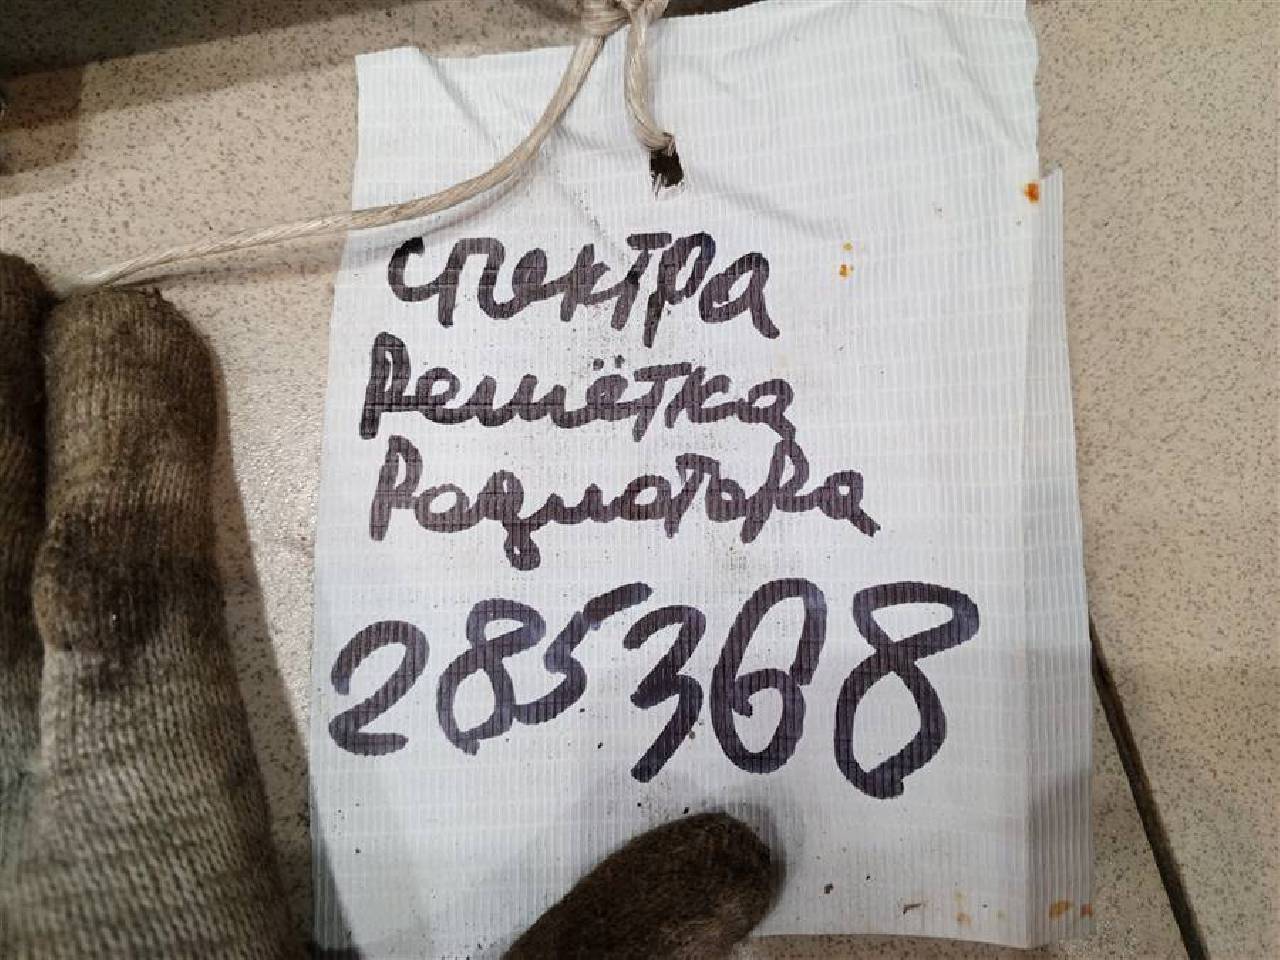 Спектра
Решётка
Радиатора
285368